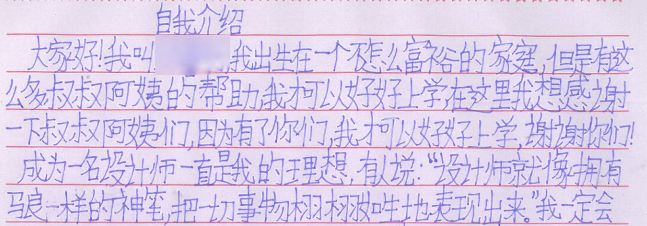 自我介绍
大家好!我叫 ,我出生在一个不怎么富裕的家寔,但是有这
么多叔叔阿姨的帮助,我才可以好好上学,在这里我想感谢
一下叔叔阿姨们,因为有了你们,我才可以好好上学,谢谢你们!
成为一名设计师一直是我的理想,有人说:“设计师就像拥有
马良一样的神笔,把一切事物栩栩如生地表现出来。”我一定会